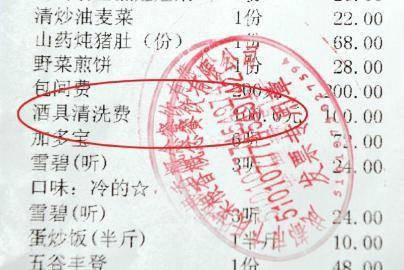 清炒油麦菜 1份 22.00
山药炖猪肚(份) 1份 68.00
野菜煎饼 1份 28.00
包间费 200 200.00
酒具清洗费 100.0元 100.00
加多宝 6听 72.00
雪碧(听) 3听 24.00
口味:冷的☆
雪碧(听) 3听 24.00
蛋炒饭(半斤) 1半斤 10.00
五谷丰登 1份 48.00
发票专用章